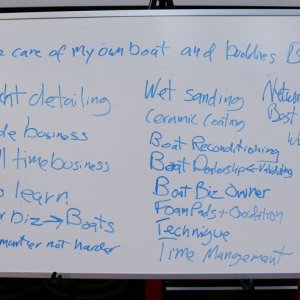 care of my own boat and buddies B
detailing
business
time business
learn
biz → Boats
not harder
Wet sanding
Ceramic Coating
Boat Reconditioning
Boat Dealership ← Validating
Boat Biz Owner
Foam Pads + Oxidation
Technique
Time Mangement
Best